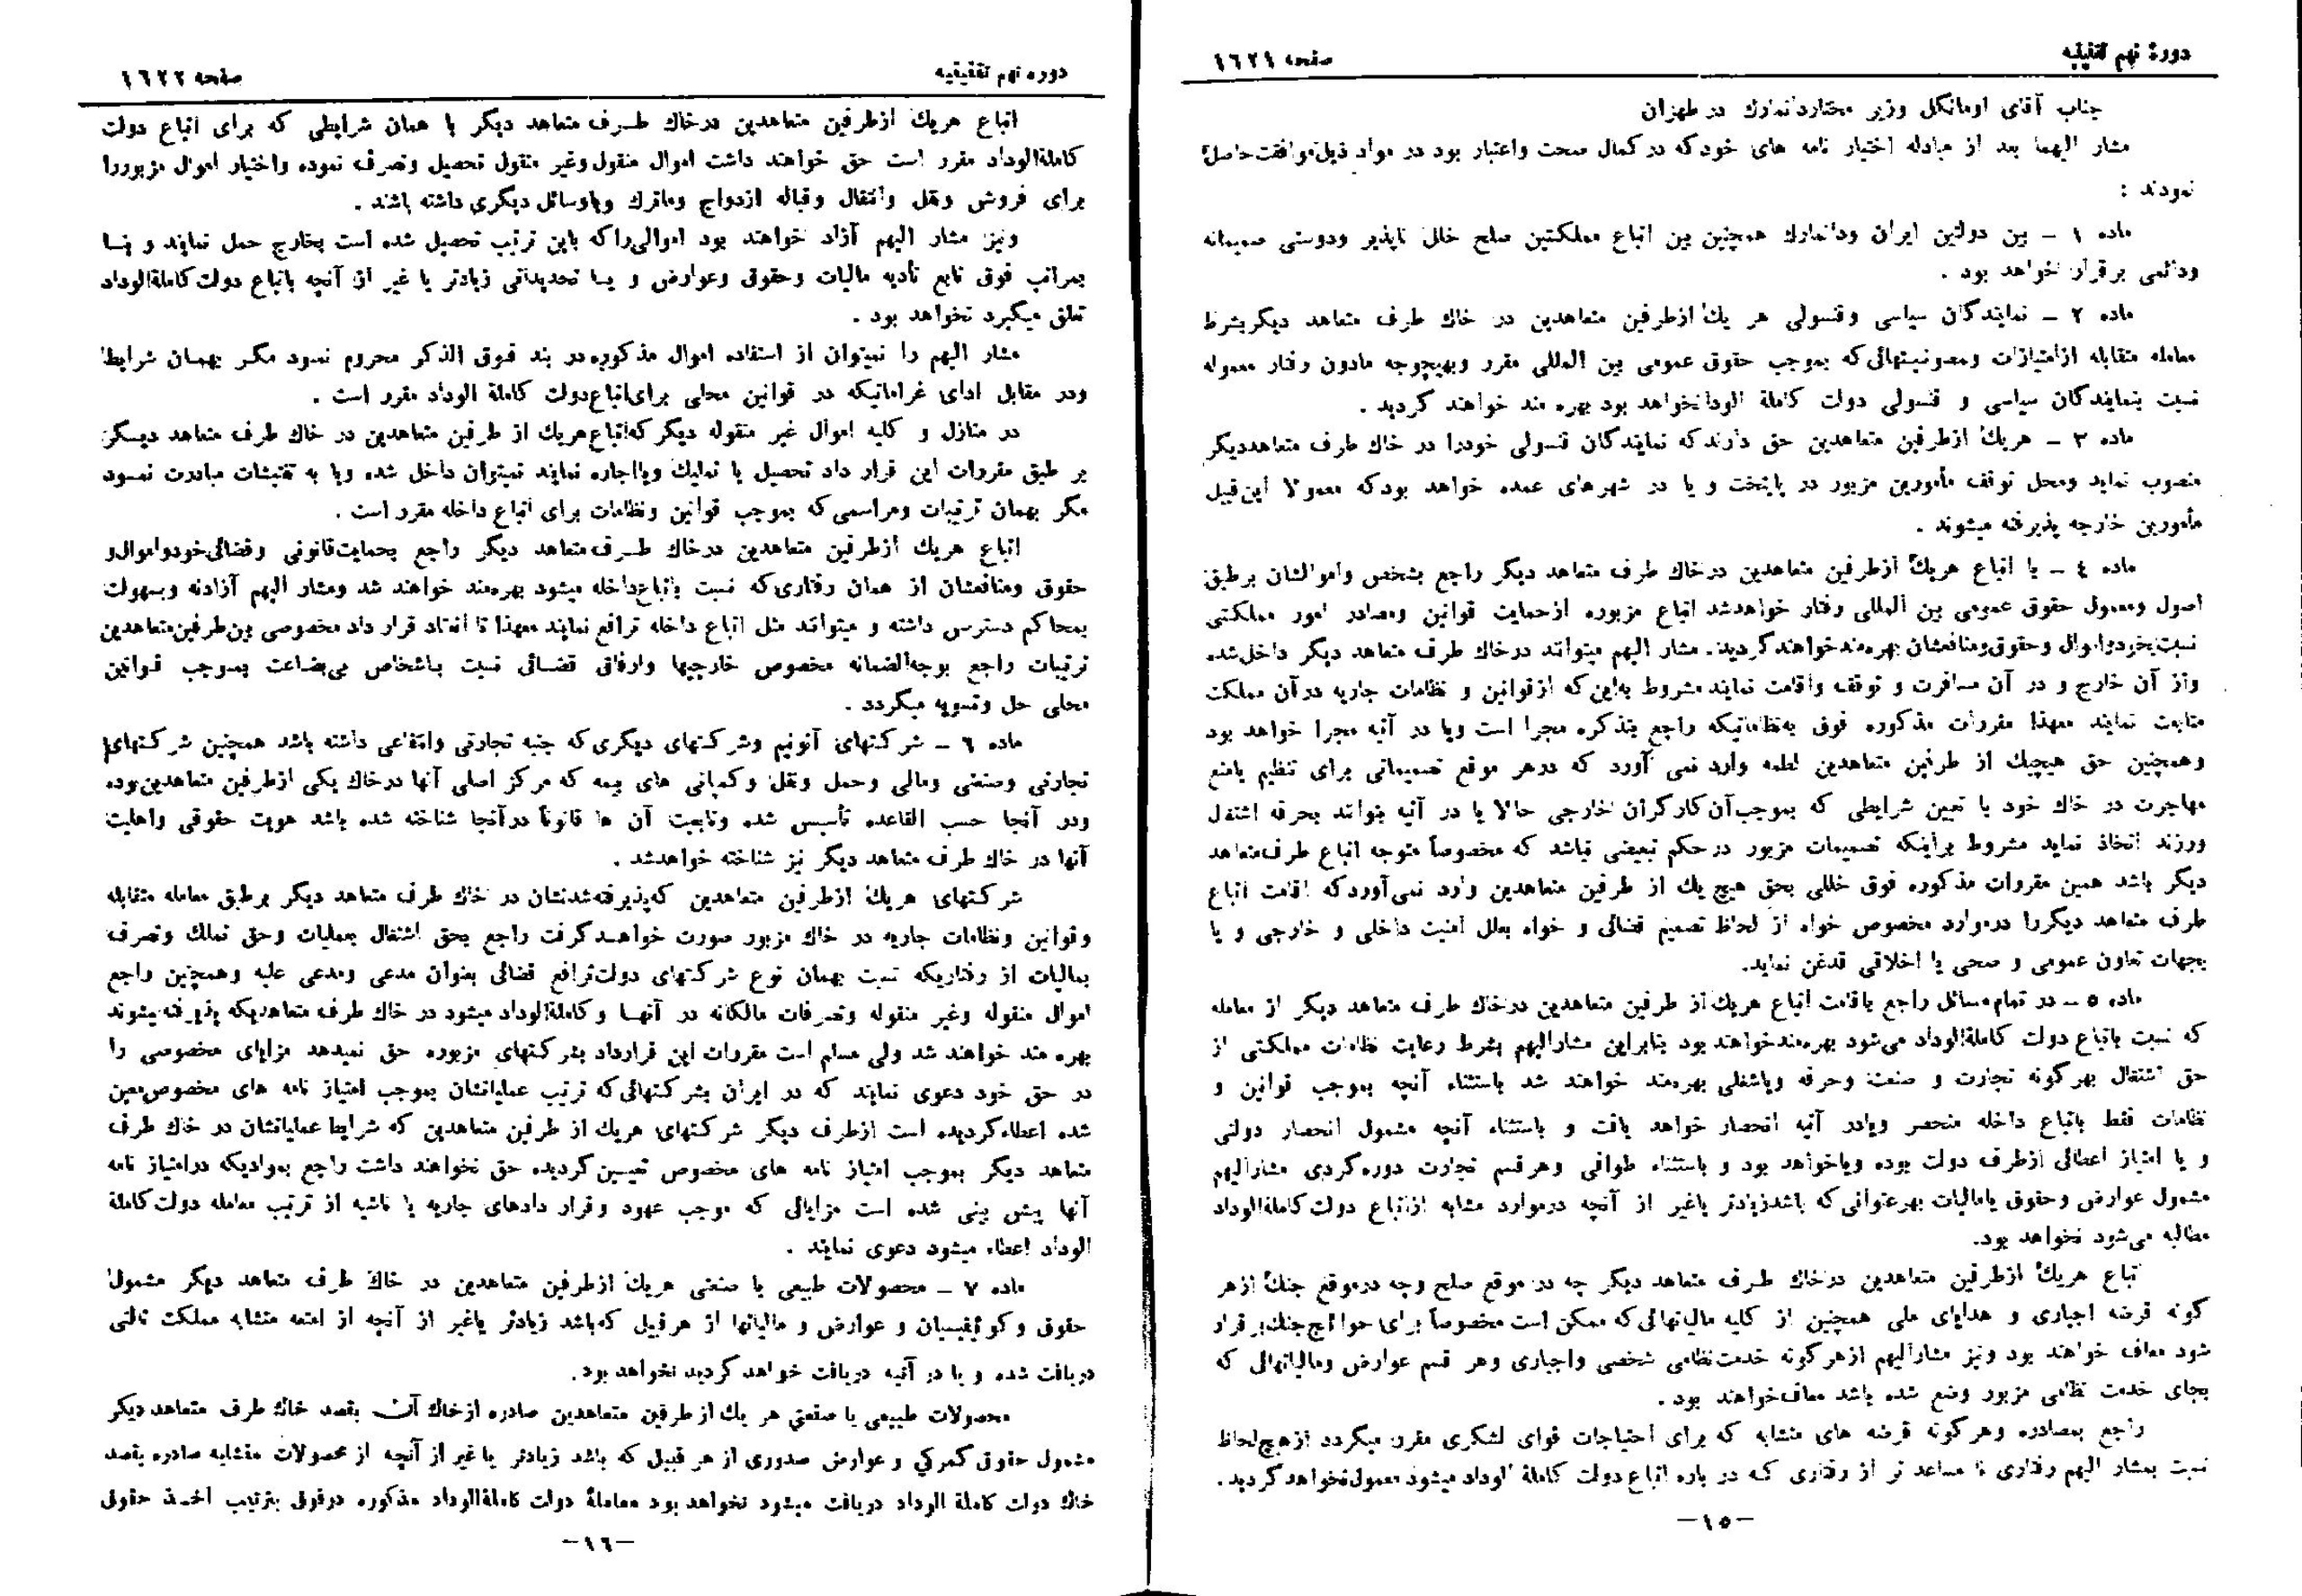 دورهٔ نهم تقنینیه
صفحه ١٦٢١
جناب آقای اومانگل وزیر مختاردانمارك در طهران
مشار الیهما بعد از مبادله اختیار نامه های خود که در کمال صحت واعتبار بود در مواد ذیل‌موافقت‌حاصل
نمودند :
ماده ١ – بین دولتین ایران ودانمارك همچنین بین اتباع مملکتین صلح خلل ناپذیر ودوستی صمیمانه
ودائمی برقرار خواهد بود .
ماده ٢ – نمایندگان سیاسی وقنسولی هر یك ازطرفین متعاهدین در خاك طرف متعاهد دیگربشرط
معامله متقابله ازامتیازات ومصونیتهائی‌که بموجب حقوق عمومی بین المللی مقرر وبهیچوجه مادون رفتار معموله
نسبت بنمایندگان سیاسی و قنسولی دولت کاملة الودادنخواهد بود بهره مند خواهند گردید .
ماده ٣ – هریك ازطرفین متعاهدین حق دارندکه نمایندگان قنسولی خودرا در خاك طرف متعاهددیگر
منصوب نماید ومحل توقف مأمورین مزبور در پایتخت و یا در شهرهای عمده خواهد بودکه معمولا این‌قبیل
مأمورین خارجه پذیرفته میشوند .
ماده ٤ – با اتباع هریك ازطرفین متعاهدین درخاك طرف متعاهد دیگر راجع بشخص واموالشان برطبق
اصول ومعمول حقوق عمومی بین المللی رفتار خواهدشد اتباع مزبوره ازحمایت قوانین ومصادر امور مملکتی
نسبت‌بخودواموال وحقوق‌ومنافعشان بهره‌مندخواهندگردید. مشار الیهم میتوانند درخاك طرف متعاهد دیگر داخل‌شده
واز آن خارج و در آن مسافرت و توقف واقامت نمایند مشروط به‌این‌که ازقوانین و نظامات جاریه درآن مملکت
متابعت نمایند معهذا مقررات مذکوره فوق به‌نظاماتیکه راجع بتذکره مجرا است ویا در آتیه مجرا خواهد بود
وهمچنین حق هیچیك از طرفین متعاهدین لطمه وارد نمی آورد که درهر موقع تصمیماتی برای تنظیم یامنع
مهاجرت در خاك خود یا تعیین شرایطی که بموجب‌آن‌کارگران خارجی حالا یا در آتیه بتوانند بحرفه اشتغال
ورزند اتخاذ نماید مشروط براینکه تصمیمات مزبور درحکم تبعیضی نباشد که مخصوصاً متوجه اتباع طرف‌متعاهد
دیگر باشد همین مقررات مذکوره فوق خللی بحق هیچ یك از طرفین متعاهدین وارد نمی‌آوردکه اقامت اتباع
طرف متعاهد دیگررا درموارد مخصوص خواه از لحاظ تصمیم قضائی و خواه بعلل امنیت داخلی و خارجی و یا
بجهات تعاون عمومی و صحی یا اخلاقی قدغن نماید.
ماده ٥ – در تمام‌مسائل راجع باقامت اتباع هریك‌از طرفین متعاهدین درخاك طرف متعاهد دیگر از معامله
که نسبت باتباع دولت کاملةالوداد می‌شود بهره‌مندخواهند بود بنابراین مشارالیهم بشرط رعایت نظامات مملکتی از
حق اشتغال بهرگونه تجارت و صنعت وحرفه ویاشغلی بهره‌مند خواهند شد باستثناء آنچه بموجب قوانین و
نظامات فقط باتباع داخله منحصر ویادر آتیه انحصار خواهد یافت و باستثناء آنچه مشمول انحصار دولتی
و یا امتیاز اعطائی ازطرف دولت بوده ویاخواهد بود و باستثناء طوافی وهرقسم تجارت دوره‌گردی مشارالیهم
مشمول عوارض وحقوق یامالیات بهرعنوانی‌که باشدزیادتر یاغیر از آنچه درموارد مشابه ازاتباع دولت‌کاملةالوداد
مطالبه می‌شود نخواهد بود.
اتباع هریك ازطرفین متعاهدین درخاك طرف متعاهد دیگر چه در موقع صلح وچه درموقع جنك ازهر
گونه قرضه اجباری و هدایای ملی همچنین از کلیه مالیاتهائی‌که ممکن است مخصوصاً برای حوائج‌جنك‌برقرار
شود معاف خواهند بود ونیز مشارالیهم ازهرگونه خدمت‌نظامی شخصی واجباری وهر قسم عوارض ومالیاتهائی که
بجای خدمت نظامی مزبور وضع شده باشد معاف‌خواهند بود .
راجع بمصادره وهرگونه قرضه های متشابه که برای احتیاجات قوای لشکری مقرر میگردد ازهیچ‌لحاظ
نسبت بمشار الیهم رفتاری نا مساعد تر از رفتاری که در باره اتباع دولت کاملة الوداد میشود معمول‌نخواهدگردید.
–١٥–
دوره نهم تقنینیه
صفحه ١٦٢٢
اتباع هریك ازطرفین متعاهدین درخاك طرف متعاهد دیگر با همان شرایطی که برای اتباع دولت
کاملةالوداد مقرر است حق خواهند داشت اموال منقول وغیر منقول تحصیل وتصرف نموده واختیار اموال مزبوررا
برای فروش ونقل وانتقال وقباله ازدواج وماترك ویاوسائل دیگری داشته باشند .
ونیز مشار الیهم آزاد خواهند بود اموالی‌راکه باین ترتیب تحصیل شده است بخارج حمل نمایند و بنا
بمراتب فوق تابع تأدیه مالیات وحقوق وعوارض و یا تحدیداتی زیادتر یا غیر از آنچه باتباع دولت‌کاملةالوداد
تعلق میگیرد نخواهد بود .
مشار الیهم را نمیتوان از استفاده اموال مذکوره‌در بند فوق الذکر محروم نمود مگر بهمان شرایط
ودر مقابل ادای غراماتیکه در قوانین محلی برای‌اتباع‌دولت کاملة الوداد مقرر است .
در منازل و کلیه اموال غیر منقوله دیگرکه‌اتباع‌هریك از طرفین متعاهدین در خاك طرف متعاهد دیگر
بر طبق مقررات این قرار داد تحصیل یا تملیك ویااجاره نمایند نمیتوان داخل شده ویا به تفتیشات مبادرت نمود
مگر بهمان ترتیبات ومراسمی‌که بموجب قوانین ونظامات برای اتباع داخله مقرر است .
اتباع هریك ازطرفین متعاهدین درخاك طرف‌متعاهد دیگر راجع بحمایت‌قانونی وقضائی‌خودواموال‌و
حقوق ومنافعشان از همان رفتاری‌که نسبت باتباع‌داخله میشود بهره‌مند خواهند شد ومشار الیهم آزادنه وبسهولت
بمحاکم دسترس داشته و میتوانند مثل اتباع داخله ترافع نمایند معهذا تا انعقاد قرار داد مخصوصی بین‌طرفین‌متعاهدین
ترتیبات راجع بوجه‌الضمانه مخصوص خارجیها وارفاق قضائی نسبت باشخاص بی‌بضاعت بموجب قوانین
محلی حل وتسویه میگردد .
ماده ٦ – شرکتهای آنونیم وشرکتهای دیگری‌که جنبه تجارتی وانتفاعی داشته باشد همچنین شرکتهای
تجارتی وصنعتی ومالی وحمل ونقل وکمپانی های بیمه که مرکز اصلی آنها درخاك یکی ازطرفین متعاهدین‌بوده
ودر آنجا حسب القاعده تأسیس شده وتابعیت آن ها قانوناً درآنجا شناخته شده باشد هویت حقوقی واهلیت
آنها در خاك طرف متعاهد دیگر نیز شناخته خواهدشد .
شرکتهای هریك ازطرفین متعاهدین که‌پذیرفته‌شدنشان در خاك طرف متعاهد دیگر برطبق معامله متقابله
وقوانین ونظامات جاریه در خاك مزبور صورت خواهدگرفت راجع بحق اشتغال بعملیات وحق تملك وتصرف
بمالیات از رفتاریکه نسبت بهمان نوع شرکتهای دولت‌ترافع قضائی بعنوان مدعی ومدعی علیه وهمچنین راجع
اموال منقوله وغیر منقوله وتصرفات مالکانه در آنها و کاملةالوداد میشود در خاك طرف متعاهدیکه پذیرفته‌میشوند
بهره مند خواهند شد ولی مسلم است مقررات این قرارداد بشرکتهای مزبوره حق نمیدهد مزایای مخصوصی را
در حق خود دعوی نمایند که در ایران بشرکتهائی‌که ترتیب عملیاتشان بموجب امتیاز نامه های مخصوص‌معین
شده اعطاءگردیده است ازطرف دیگر شرکتهای هریك از طرفین متعاهدین که شرایط عملیاتشان در خاك طرف
متعاهد دیگر بموجب امتیاز نامه های مخصوص تعیین‌گردیده حق نخواهند داشت راجع بموادیکه درامتیاز نامه
آنها پیش بینی شده است مزایائی که موجب عهود وقرار دادهای جاریه یا ناشیه از ترتیب معامله دولت‌کاملة
الوداد اعطاء میشود دعوی نمایند .
ماده ٧ – محصولات طبیعی یا صنعتی هریك ازطرفین متعاهدین در خاك طرف متعاهد دیگر مشمول
حقوق وکوئفیسیان و عوارض و مالیاتها از هرقبیل که‌باشد زیادتر یاغیر از آنچه از امتعه متشابه مملکت ثالثی
دریافت شده و یا در آتیه دریافت خواهد گردید نخواهد بود.
محصولات طبیعی یا صنعتی هر یك از طرفین متعاهدین صادره از خاك آن بقصد خاك طرف متعاهد دیگر
مشمول حقوق گمرکي و عوارض صدوری از هر قبیل که باشد زیادتر یا غیر از آنچه از محصولات متشابه صادره بقصد
خاك دولت کاملة الوداد دریافت میشود نخواهد بود معاملهٔ دولت کاملةالوداد مذکوره درفوق بترتیب اخذ حقوق
–١٦–